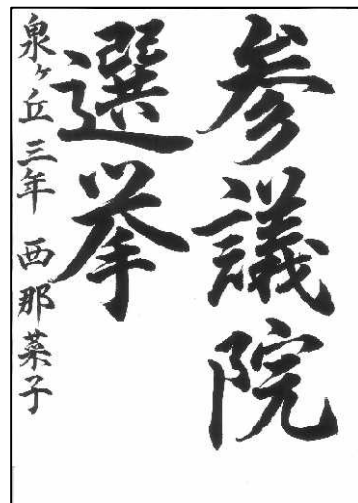 参議院
選挙
泉ヶ丘三年 西那菜子